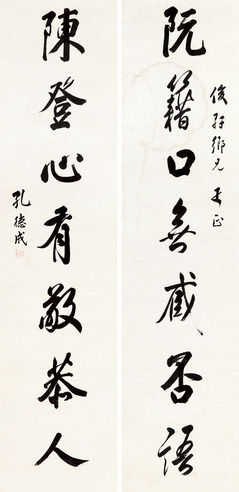 俊 鄉兄 正
阮籍口無臧否語
陳登心有敬恭人
孔德成